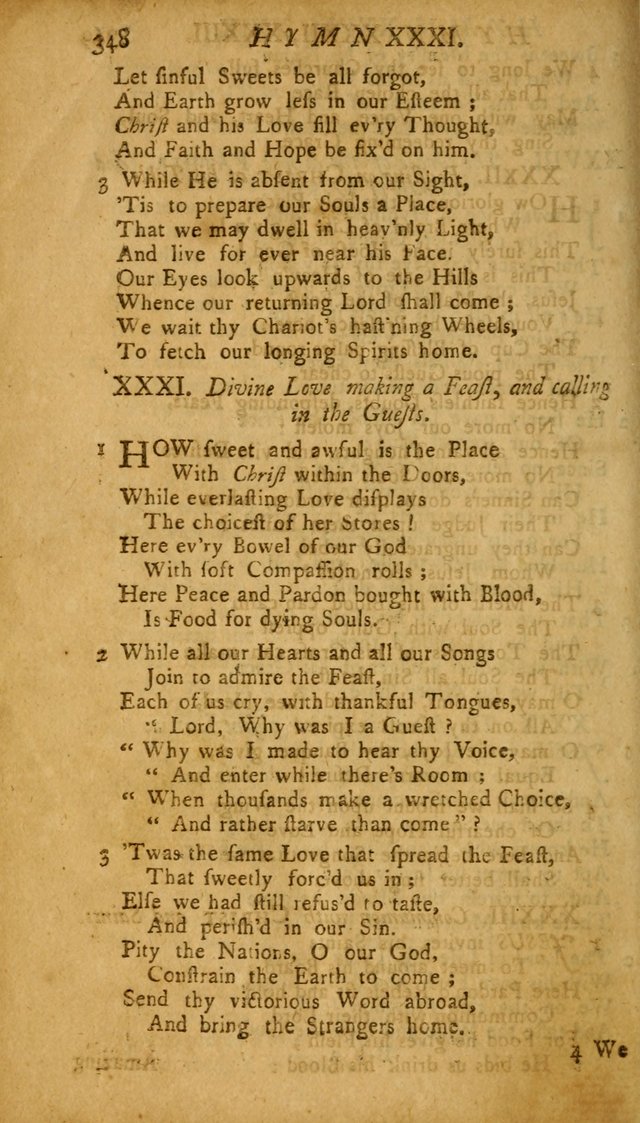 348 HYMN XXXI.
Let ſinful Sweets be all forgot,
And Earth grow leſs in our Eſteem ;
Chriſt and his Love fill ev'ry Thought,
And Faith and Hope be fix'd on him.
3 While He is abſent from our Sight,
'Tis to prepare our Souls a Place,
That we may dwell in heav'nly Light,
And live for ever near his Face.
Our Eyes look upwards to the Hills
Whence our returning Lord ſhall come ;
We wait thy Chariot's haſt'ning Wheels,
To fetch our longing Spirits home.
XXXI. Divine Love making a Feaſt, and calling
in the Gueſts.
1 HOW ſweet and awful is the Place
With Chriſt within the Doors,
While everlaſting Love diſplays
The choiceſt of her Stores !
Here ev'ry Bowel of our God
With ſoft Compaſſion rolls ;
Here Peace and Pardon bought with Blood,
Is Food for dying Souls.
2 While all our Hearts and all our Songs
Join to admire the Feaſt,
Each of us cry, with thankful Tongues,
“ Lord, Why was I a Gueſt ?
“ Why was I made to hear thy Voice,
“ And enter while there's Room ;
“ When thouſands make a wretched Choice,
“ And rather ſtarve than come ” ?
3 'Twas the ſame Love that ſpread the Feaſt,
That ſweetly forc'd us in ;
Elſe we had ſtill refus'd to taſte,
And periſh'd in our Sin.
Pity the Nations, O our God,
Conſtrain the Earth to come ;
Send thy victorious Word abroad,
And bring the Strangers home.
4 We